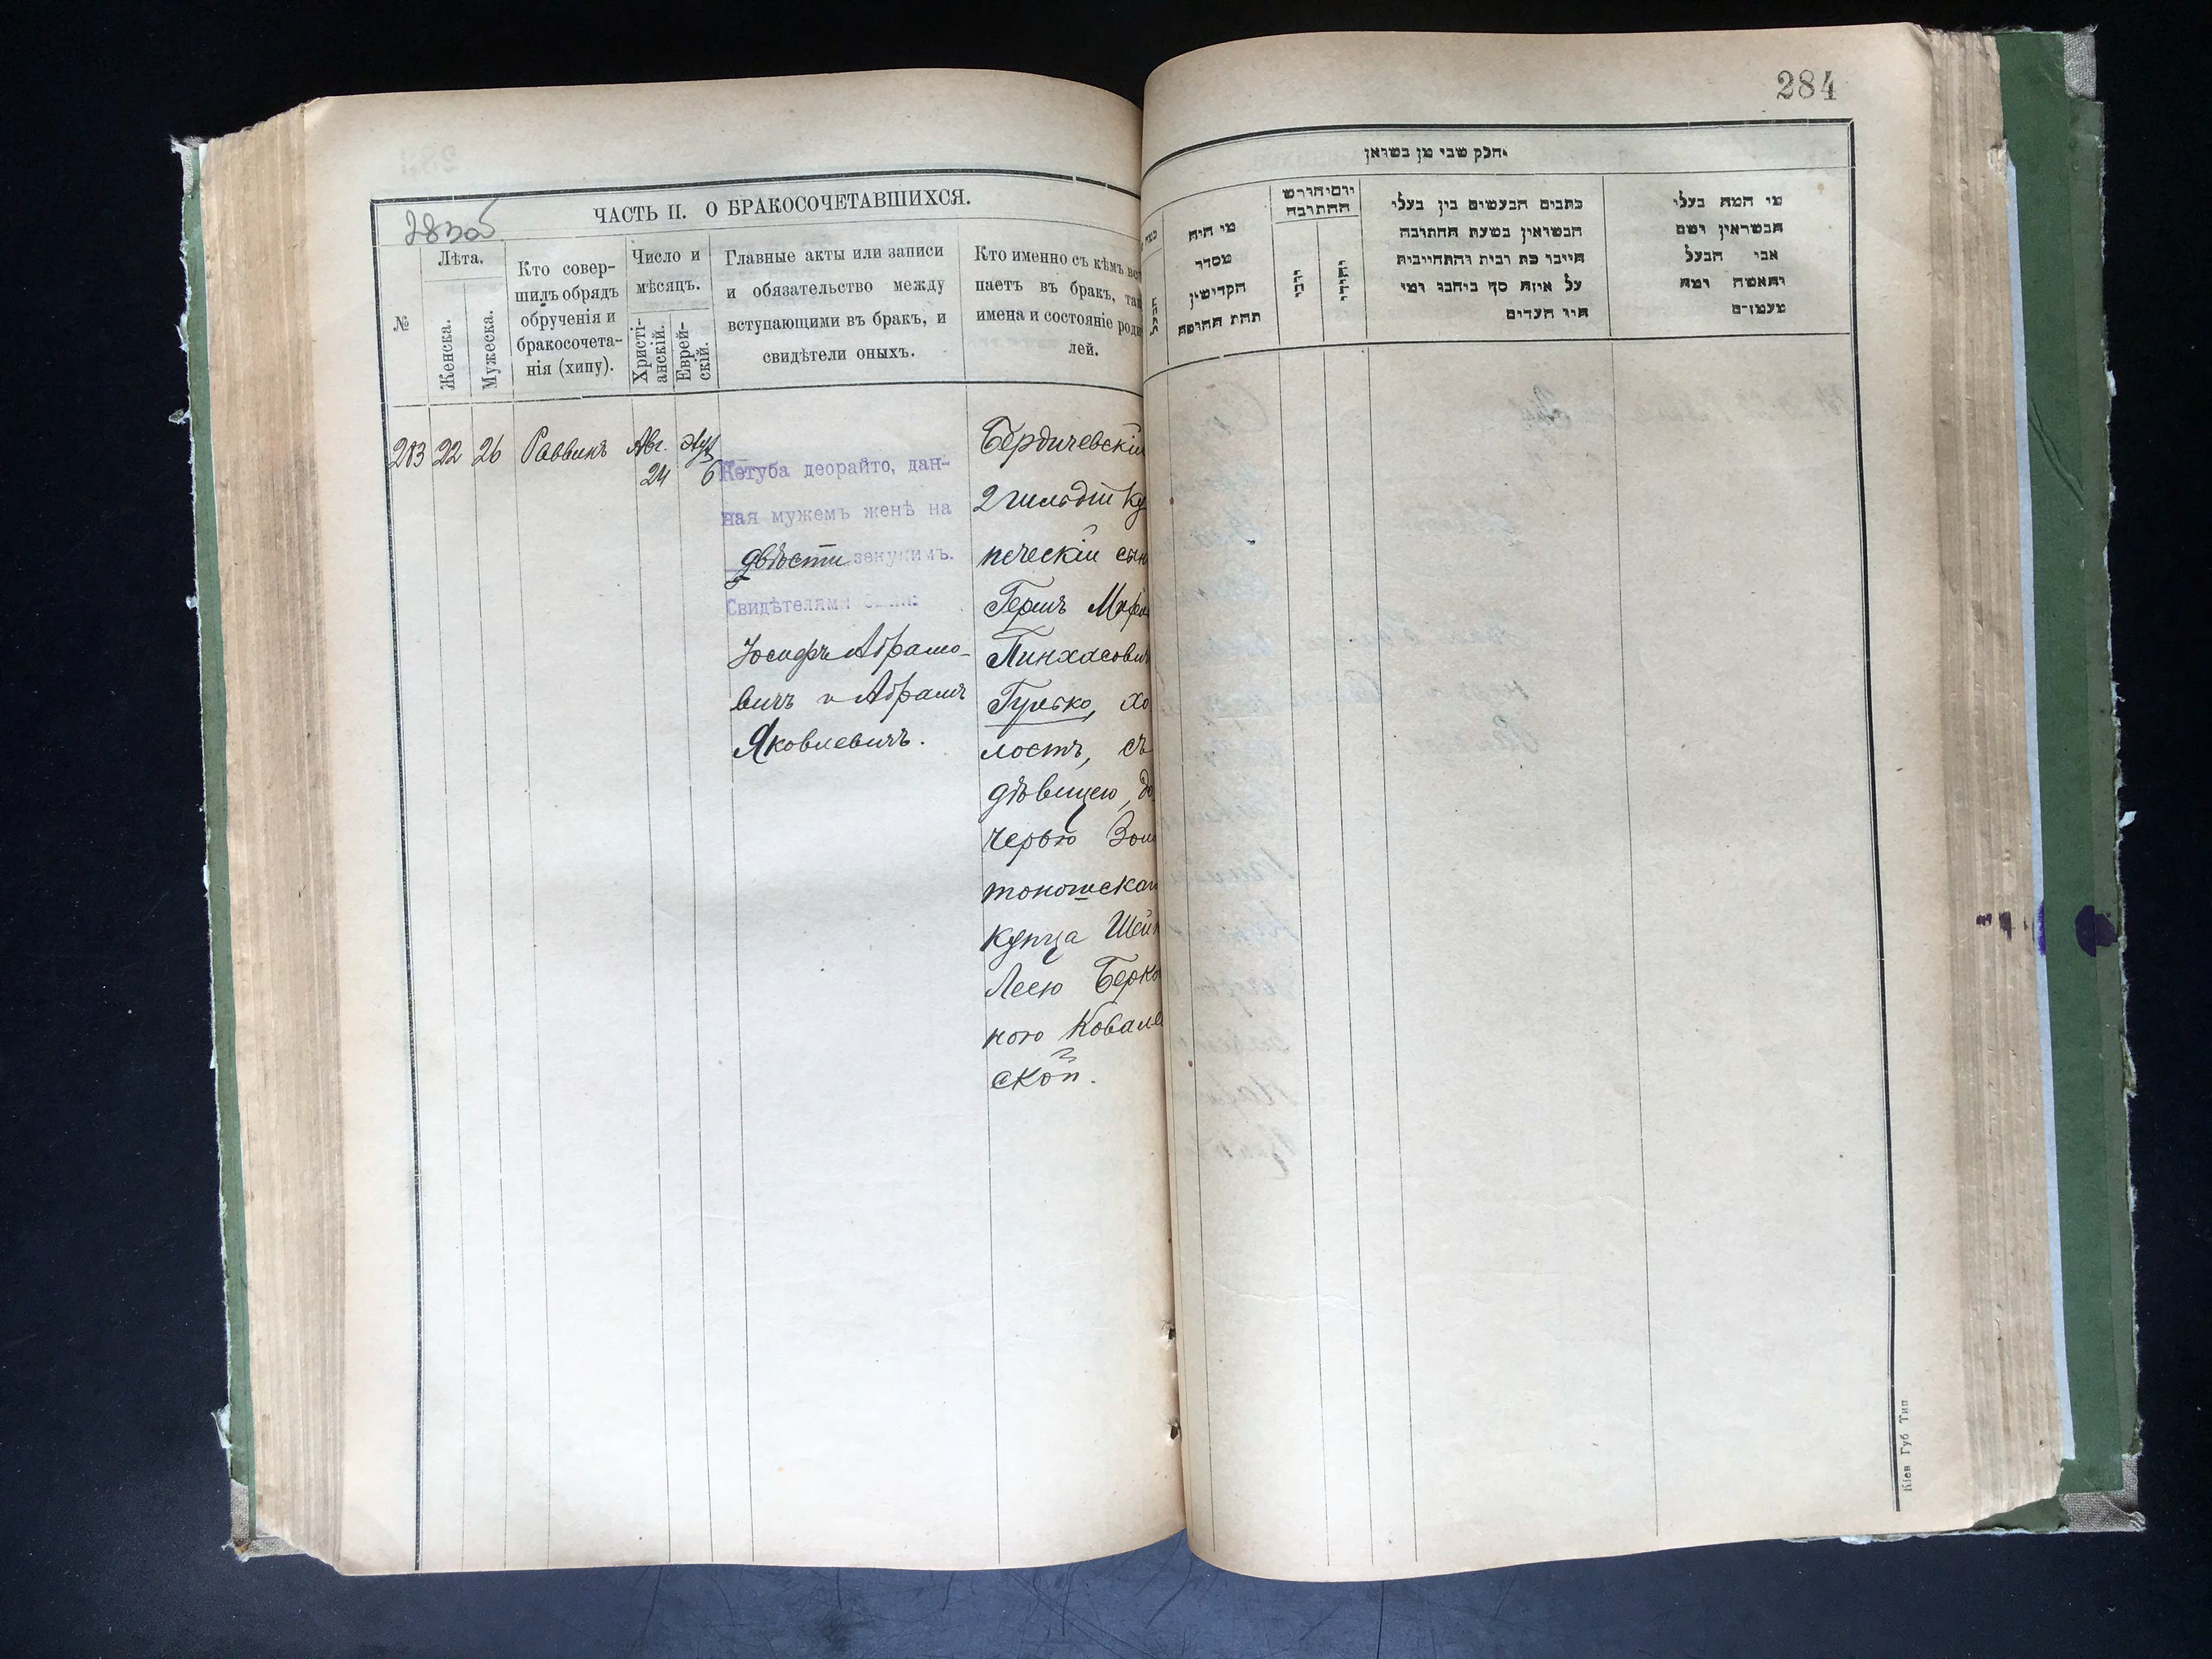 283об
ЧАСТЬ II. О БРАКОСОЧЕТАВШИХСЯ.
№
Лѣта.
Женска.
Мужеска.
Кто совер-
шилъ обрядъ
обрученія и
бракосочета-
нія (хипу).
Число и
мѣсяцъ.
Христі-
анскій.
Еврей-
скій.
Главные акты или записи
и обязательство между
вступающими въ бракъ, и
свидѣтели оныхъ.
Кто именно съ кѣмъ вст
паетъ въ бракъ, так
имена и состояніе роди
лей.
283 22 26 Раввинъ Авг. 24 6
Кетуба деорайто, дан-
ная мужемъ женѣ на
двѣсти зекукимъ.
Свидѣтелями были:
Іосифъ Абрамо-
вичъ и Абрамъ
Яковлевичъ.
Бердичевскій
2 гильдіи ку
печескій сын
Гершъ
Пинхасович
Гурько, хо
лостъ, съ
дѣвицею, до
черью Золо
тоношскаго
купца Шейн
Леею Берко
ною Ковалев
ской.
284
חלק שני מן נשואין
מי היה
מסדר
הקדושין
תחת החופה
יום וחודש
החתונה
נוצרי
יהודי
כתבים הנעשים בין בעלי
הנשואין בשעת החתונה
היינו כת ובית והתחייבות
על איזה סך ביחבו ומי
היו העדים
מי המה בעלי
הנשואין ושם
אבי הבעל
והאשה ומה
מעמדם
הבעל
Кіев Губ Тип